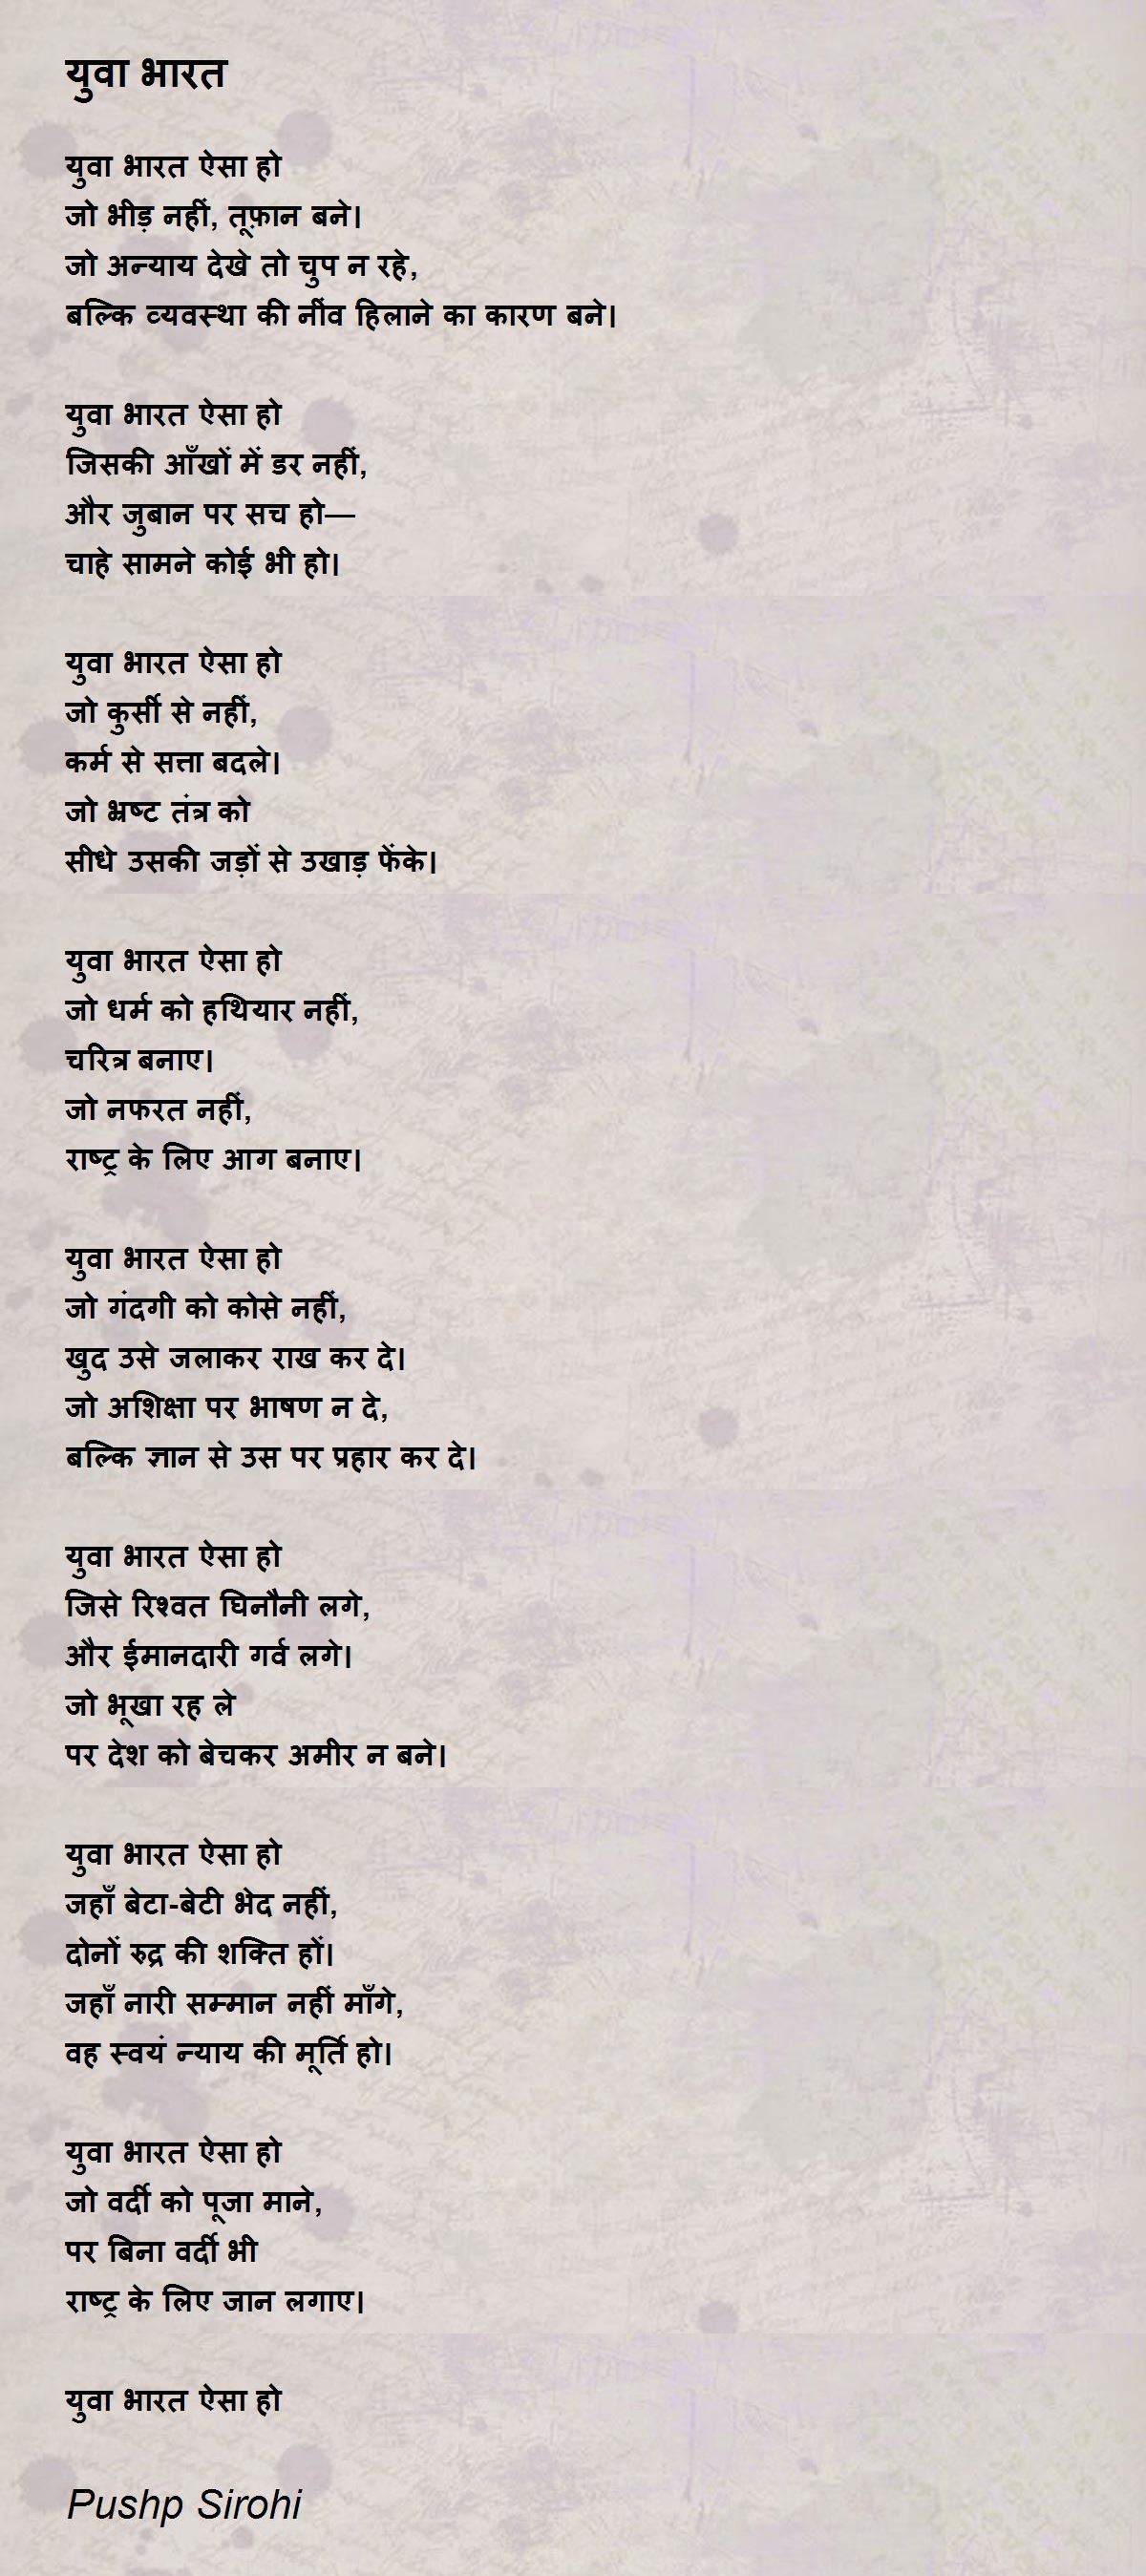 युवा भारत
युवा भारत ऐसा हो
जो भीड़ नहीं, तूफ़ान बने।
जो अन्याय देखे तो चुप न रहे,
बल्कि व्यवस्था की नींव हिलाने का कारण बने।
युवा भारत ऐसा हो
जिसकी आँखों में डर नहीं,
और जुबान पर सच हो—
चाहे सामने कोई भी हो।
युवा भारत ऐसा हो
जो कुर्सी से नहीं,
कर्म से सत्ता बदले।
जो भ्रष्ट तंत्र को
सीधे उसकी जड़ों से उखाड़ फेंके।
युवा भारत ऐसा हो
जो धर्म को हथियार नहीं,
चरित्र बनाए।
जो नफरत नहीं,
राष्ट्र के लिए आग बनाए।
युवा भारत ऐसा हो
जो गंदगी को कोसे नहीं,
खुद उसे जलाकर राख कर दे।
जो अशिक्षा पर भाषण न दे,
बल्कि ज्ञान से उस पर प्रहार कर दे।
युवा भारत ऐसा हो
जिसे रिश्वत घिनौनी लगे,
और ईमानदारी गर्व लगे।
जो भूखा रह ले
पर देश को बेचकर अमीर न बने।
युवा भारत ऐसा हो
जहाँ बेटा-बेटी भेद नहीं,
दोनों रुद्र की शक्ति हों।
जहाँ नारी सम्मान नहीं माँगे,
वह स्वयं न्याय की मूर्ति हो।
युवा भारत ऐसा हो
जो वर्दी को पूजा माने,
पर बिना वर्दी भी
राष्ट्र के लिए जान लगाए।
युवा भारत ऐसा हो
Pushp Sirohi